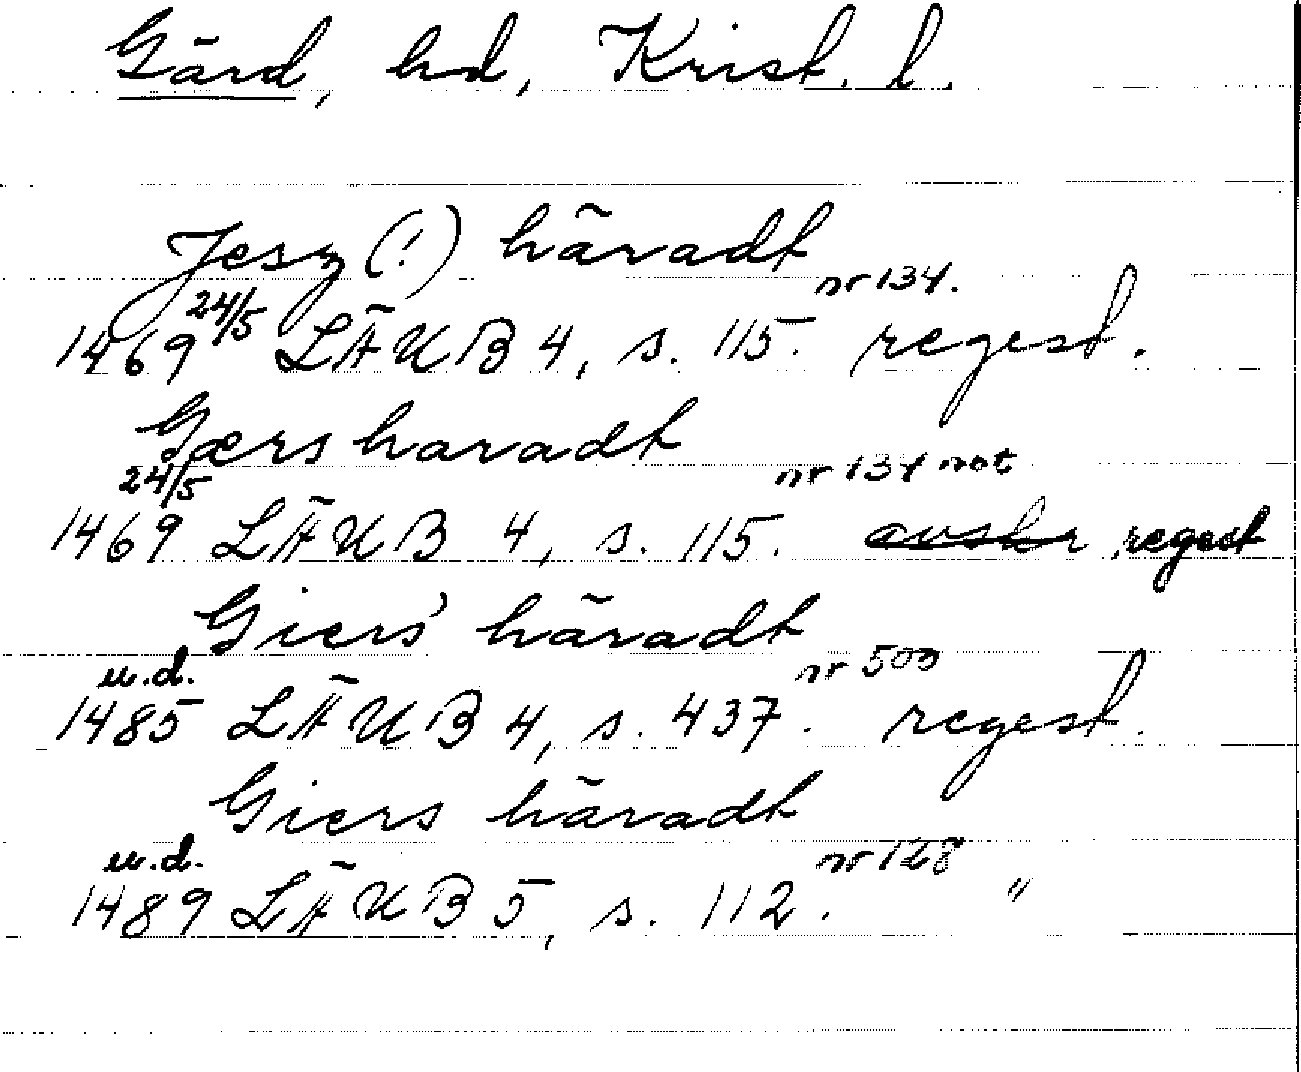 Gärd, hd, Krist. l.
Jesz (!) häradt
1469 24/5 LÄUB 4, s. 115. nr 134. regest.
Gærs haradt
1469 24/5 LÄUB 4, s. 115. nr 134 not avskr regest
Giers' häradt
1485 u.d. LÄUB 4, s. 437. nr 500 regest.
Giers häradt
1489 u.d. LÄUB 5, s. 112. nr 128 "